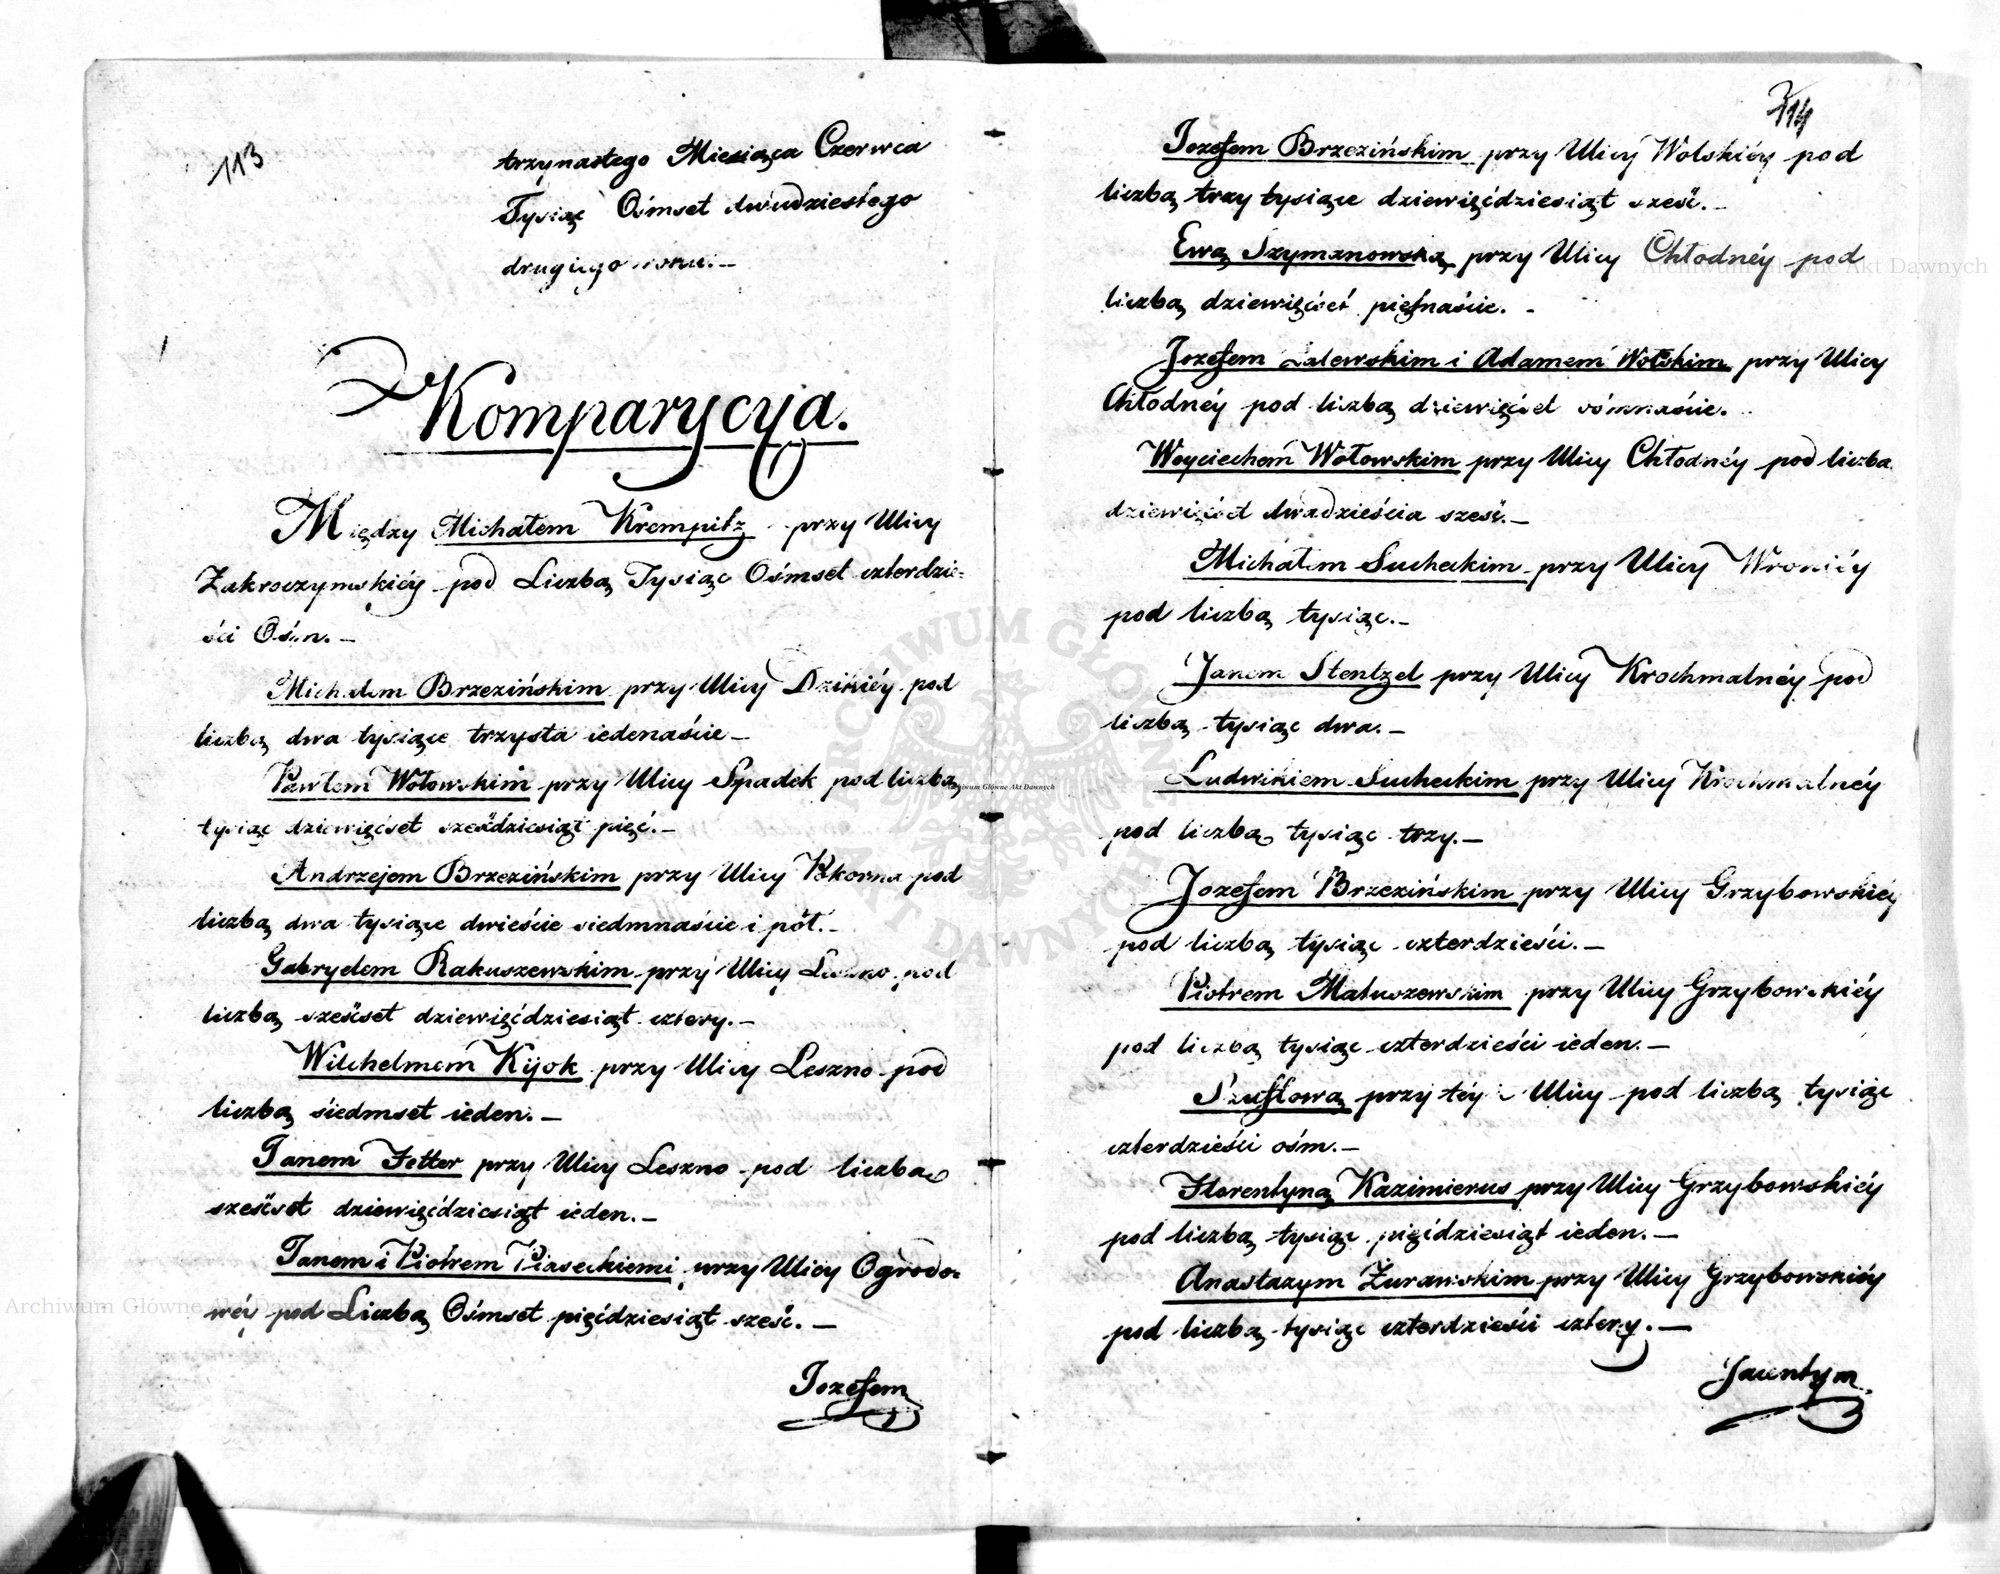 113
trzynastego Miesiąca Czerwca
Tysiąc Ośmset dwudziestego
drugiego roku.–
Komparycyja.
Między Michałem Krempitz przy Ulicy
Zakroczymskiéy pod Liczbą Tysiąc Ośmset czterdzie-
ści Ośm.–
Michałem Brzezińskim przy Ulicy Dzikiéy pod
liczbą dwa tysiące trzysta iedenaście–
Pawłem Wołowskim przy Ulicy Spadek pod liczbą
tysiąc dziewięćset sześćdziesiąt pięć.–
Andrzejem Brzezińskim przy Ulicy Pokorna pod
liczbą dwa tysiące dwieście siedmnaście i pół.–
Gabryelem Rakuszewskim przy Ulicy Leszno pod
liczbą sześćset dziewięćdziesiąt cztery.–
Wilchelmem Kijok przy Ulicy Leszno pod
liczbą siedmset ieden.–
Janem Fetter przy Ulicy Leszno pod liczbą
sześćset dziewięćdziesiąt ieden.–
Janem i Piotrem Piaseckiemi przy Ulicy Ogrodo-
wéy pod Liczbą Ośmset pięćdziesiąt sześć.–
Jozefem
114
Jozefem Brzezińskim przy Ulicy Wolskiéy pod
liczbą trzy tysiące dziewięćdziesiąt sześć.–
Ewą Szymanowską przy Ulicy Chłodnéy pod
liczbą dziewięćset piętnaście.–
Jozefem Zalewskim i Adamem Wolskim przy Ulicy
Chłodnéy pod liczbą dziewięćset ośmnaście.–
Woyciechem Wołowskim przy Ulicy Chłodnéy pod liczba
dziewięćset dwadzieścia sześć.–
Michałem Sucheckim przy Ulicy Wroniéy
pod liczbą tysiąc.–
Janem Stentzel przy Ulicy Krochmalnéy pod
liczbą tysiąc dwa.–
Ludwikiem Sucheckim przy Ulicy Krochmalnéy
pod liczbą tysiąc trzy.–
Jozefem Brzezińskim przy Ulicy Grzybowskiéy
pod liczbą tysiąc czterdzieści.–
Piotrem Matuszewskim przy Ulicy Grzybowskiéy
pod liczbą tysiąc czterdzieści ieden.–
Szustową przy téy Ulicy pod liczbą tysiąc
czterdzieści ośm.–
Florentyną Kazimierus przy Ulicy Grzybowskiéy
pod liczbą tysiąc pięćdziesiąt ieden.–
Anastazym Żurawskim przy Ulicy Grzybowskiéy
pod liczbą tysiąc czterdzieści cztery.–
Jacentym
Archiwum Główne Akt Dawnych